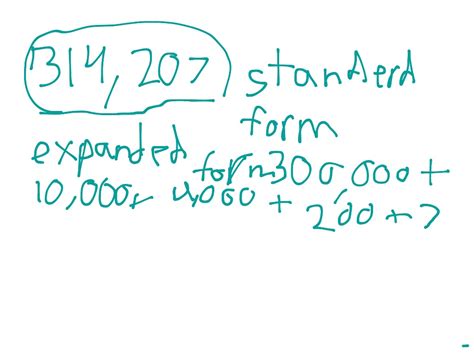 314,207 standerd
form
expanded form 300,000 +
10,000+ 4,000 + 200 + 7